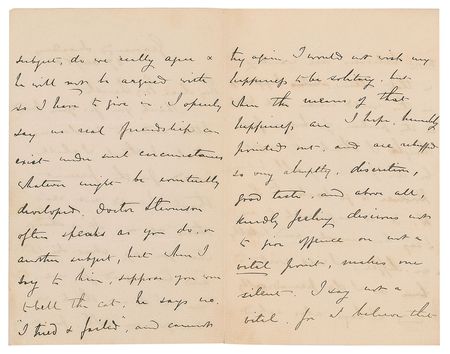 subject, do we really agree &
he will not be argued with
so I have to give in. I openly
say no real friendship can
exist under such circumstances
whatever might be eventually
developed. Doctor Stevenson
often speaks as you do, on
another subject, but when I
say to him, suppose you were
to bell the cat, he says no.
"I tried & failed", and cannot
try again. I would not wish my
happiness to be solitary, but
when the means of that
happiness are I hope, humbly
pointed out, and are rebuffed
so very abruptly, discretion,
good taste, and above all,
kindly feeling desirous not
to give offence on not a
vital point, makes one
silent. I say not a
vital, for I believe that